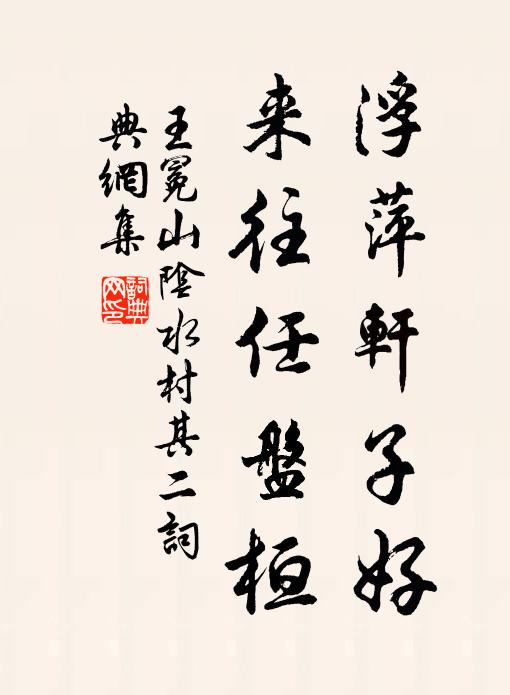 浮萍軒子好
来往任盤桓
王冕山陰水村其二詞
典網集
詞典
网印